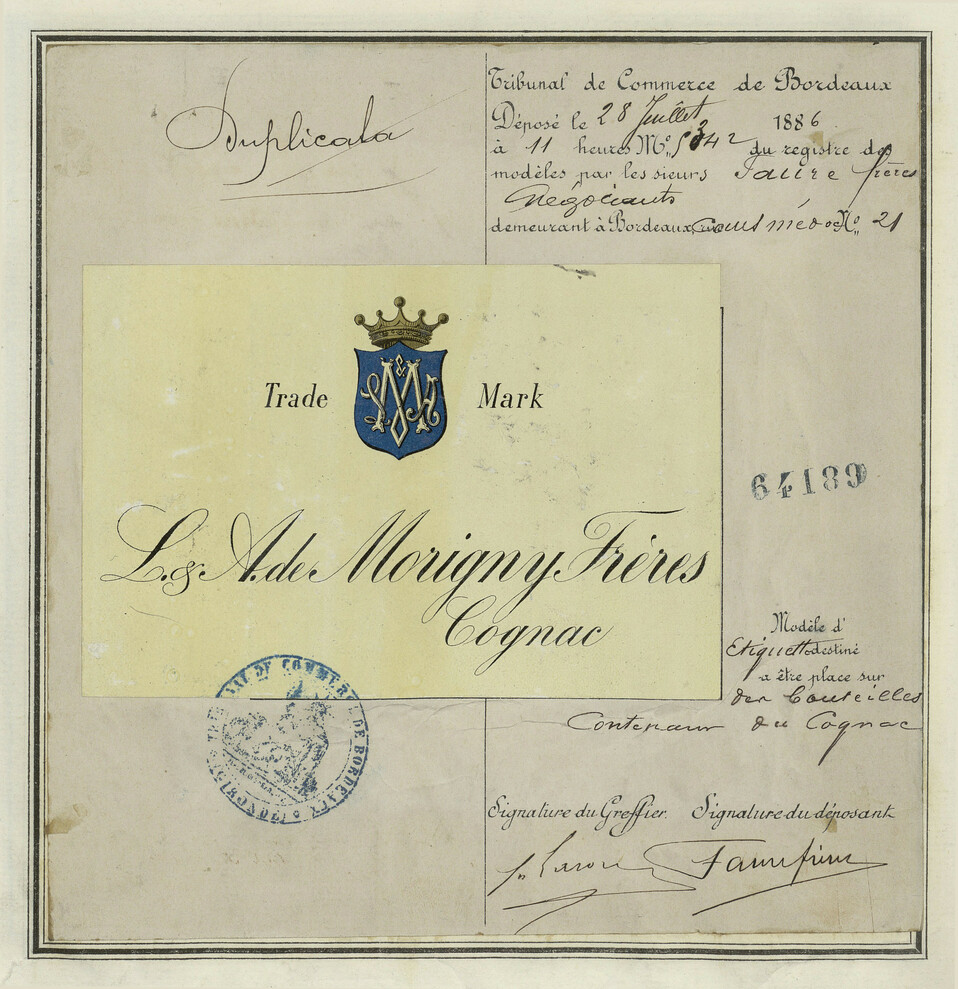 Duplicata
Tribunal de Commerce de Bordeaux
Déposé le 28 Juillet 1886
à 11 heures No. 5342 du registre des
modèles par les sieurs Faure frères
Négociants
demeurant à Bordeaux, cours médoc No. 21
Trade Mark
L. & A. de Morigny Frères
Cognac
64189
Modèle d'
Etiquette destiné
a être place sur
des bouteilles
Contenant du Cognac
TRIBUNAL DE COMMERCE DE BORDEAUX
Signature du Greffier. Signature du déposant
Faure frères